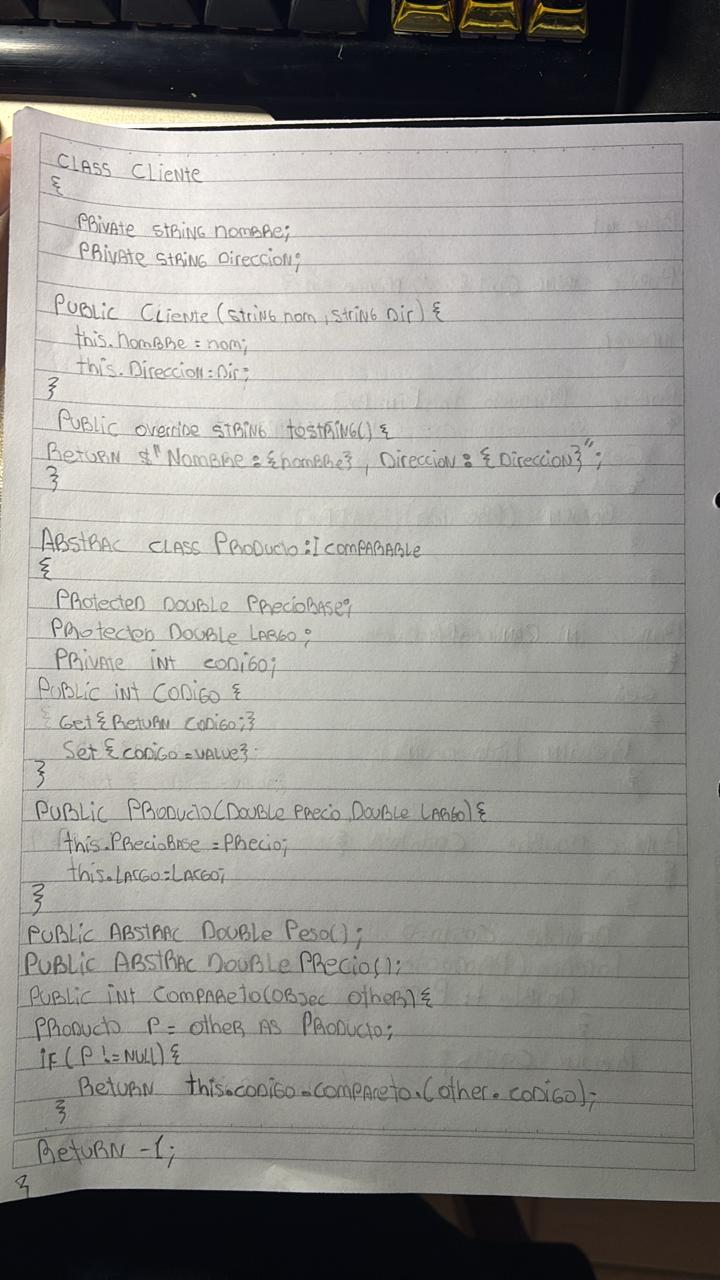 CLASS Cliente
{
Private string nombre;
Private string Direccion;
Public Cliente (string nom, string Dir) {
this.nombre = nom;
this.Direccion = Dir;
}
Public override string tostring() {
Return $"Nombre = {nombre}, Direccion = {Direccion}";
}
Abstrac class Producto : Icomparable
{
Protected Double PrecioBase;
Protected Double Largo;
Private int codigo;
Public int Codigo {
Get {Return codigo;}
Set {codigo = value}
}
Public Producto(Double Precio, Double Largo) {
this.PrecioBase = Precio;
this.Largo = Largo;
}
Public Abstrac Double Peso();
Public Abstrac Double Precio();
Public int Compareto(Objec other) {
Producto P = other as Producto;
if (P != null) {
Return this.codigo.compareto.(other.codigo);
}
Return -1;
}